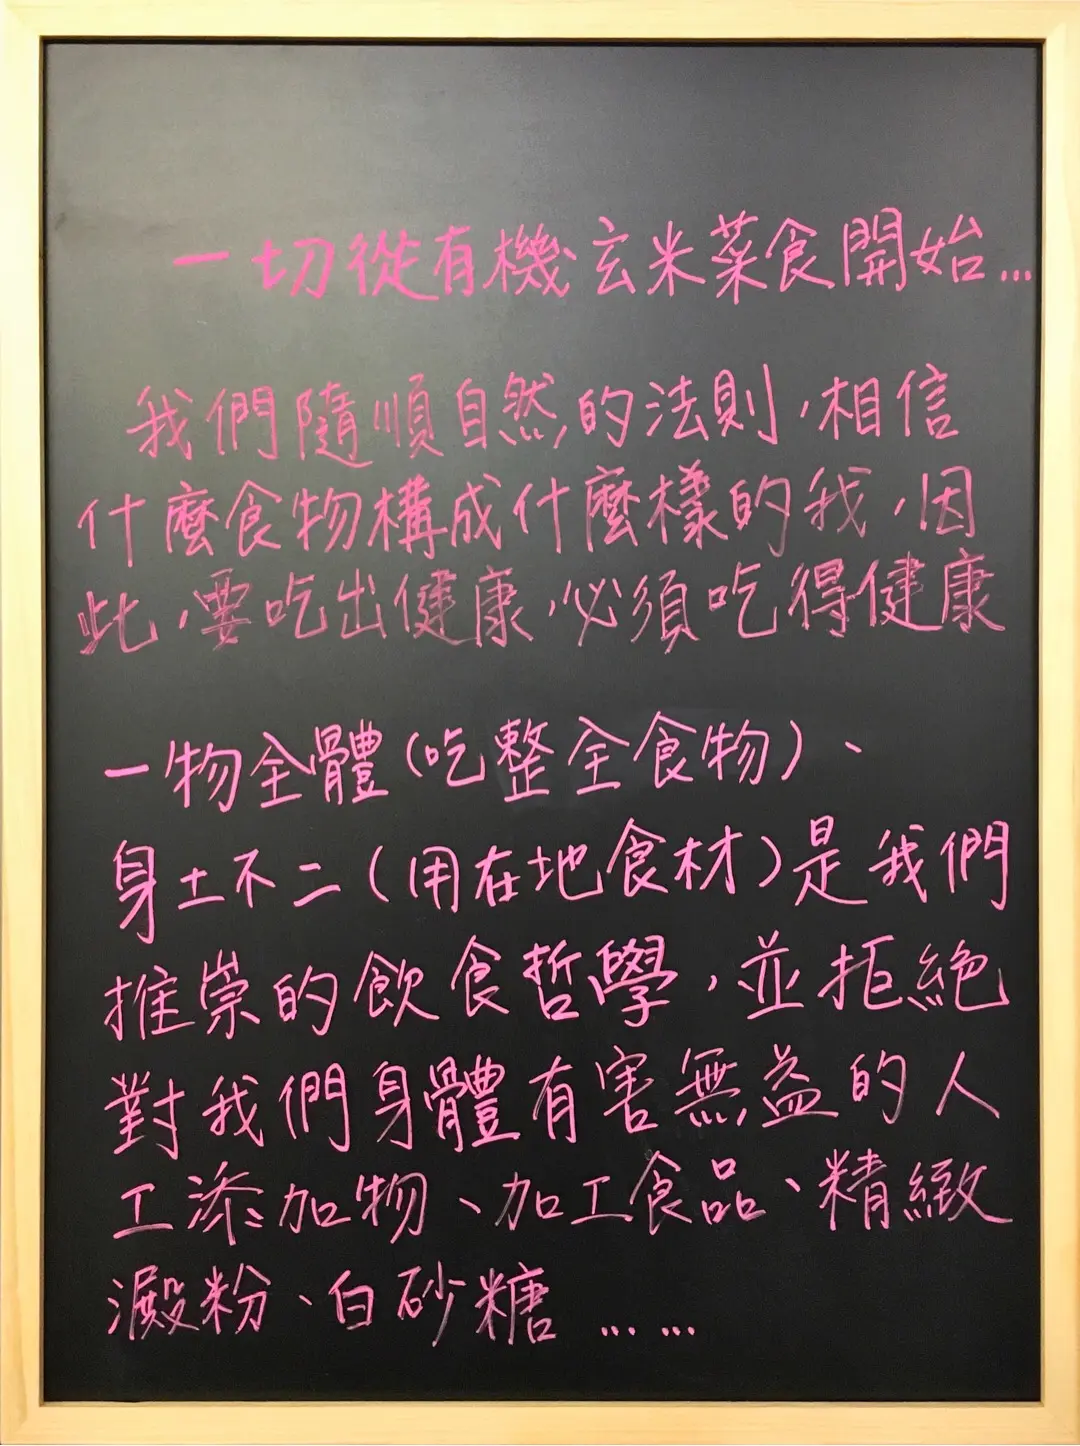 一切從有機玄米菜食開始...
我們隨順自然的法則,相信
什麼食物構成什麼樣的我,因
此,要吃出健康,必須吃得健康
一物全體(吃整全食物)、
身土不二(用在地食材)是我們
推崇的飲食哲學,並拒絕
對我們身體有害無益的人
工添加物、加工食品、精緻
澱粉、白砂糖……